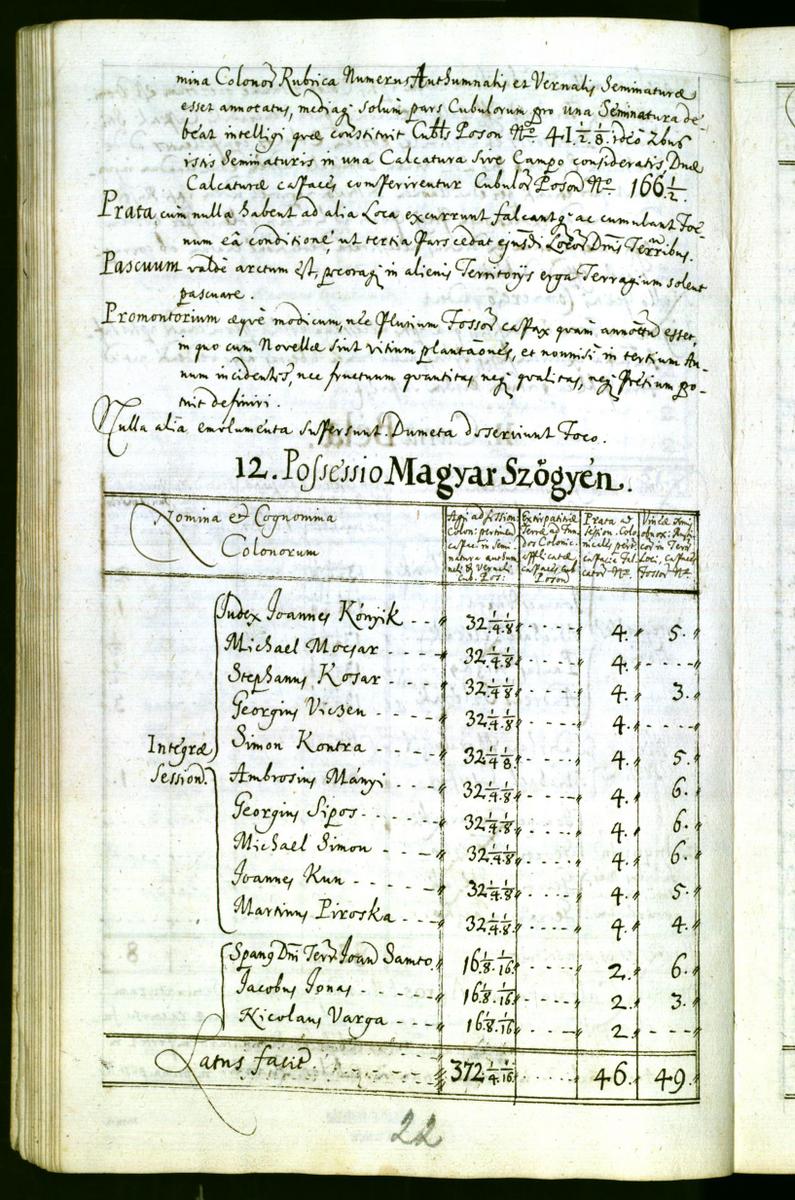 mina Colonor̃ Rubrica Numerus Authumnalis et Vernalis Seminaturæ
esset annotatus, mediaq̃ solum pars Cubulorum pro una Seminatura de-
beat intelligi quæ constituit Cubłs Poson Nº. 41 1/2. 1/8. ideo 2bus
istis Seminaturis in una Calcatura sive Campo consideratis. Duæ
Calcaturæ capaces conspicirentur Cubulor̃ Poson Nº. 166 1/2.
Prata, cum nulla habent ad alia Loca excurrunt falcantq̃ ac cumulant Foe-
num eâ conditione, ut tertia Pars cedat ejusdi Locor̃ Dnis Terr̃ibus.
Pascuum valde arctum est, in alienis Territorijs erga Terragium solent
pascuare.
Promontorium æque modicum, nec Plurium Fossor̃ capax quam annotatũ esset,
in quo cum Novellæ sint vitium plantaões, et nonnisi in tertium An-
num incidentes, nec fructuum quantitas neq̃ qualitas, neq̃ Pretium po-
tuit definiri.
Nulla alia emolumenta suppersunt. Dumeta deserviunt Foco.
12. Possessio Magyar Szögyén.
Nomina et Cognomina
Colonorum
Agri ad session.
Coloni pertinen.
capaci in Semi-
natura authum-
nali & Vernali
Cub. Pos:
Extirpatitiæ
Terræ ad Fun-
dos Colonic.
applicatæ
capaces Cub.
Poson
Prata ad
session. Colo-
nicales pert.
capacia Fal-
cator Nº.
Vineæ
obnox:
cor in Terr
Loci. capaces
Fossor Nº.
Integræ
Session.
Judex Joannes Kónyik - - - " 32 1/4. 1/8 " - - - - " 4. " 5. "
Michael Mocsar - - - - " 32 1/4. 1/8 " - - - - " 4. " - - - "
Stephanus Kosar - - - - " 32 1/4. 1/8 " - - - - " 4. " 3. "
Georgius Viczen - - - - " 32 1/4. 1/8 " - - - - " 4. " - - - "
Simon Kontra - - - - " 32 1/4. 1/8 " - - - - " 4. " 5. "
Ambrosius Mányi - - - - " 32 1/4. 1/8 " - - - - " 4. " 6. "
Georgius Sipos - - - - " 32 1/4. 1/8 " - - - - " 4. " 6. "
Michael Simon - - - - " 32 1/4. 1/8 " - - - - " 4. " 6. "
Joannes Kun - - - - " 32 1/4. 1/8 " - - - - " 4. " 5. "
Martinus Piroska - - - " 32 1/4. 1/8 " - - - - " 4. " 4. "
Span9 Dni Terr̃ Joan Samto. " 16 1/8. 1/16 " - - - - " 2. " 6. "
Jacobus Jonas - - - - " 16 1/8. 1/16 " - - - - " 2. " 3. "
Nicolaus Varga - - - - " 16 1/8. 1/16 " - - - - " 2. " - - - "
Latus facit - - - - " 372 1/4. 1/16 " - - - - " 46. " 49. "
22